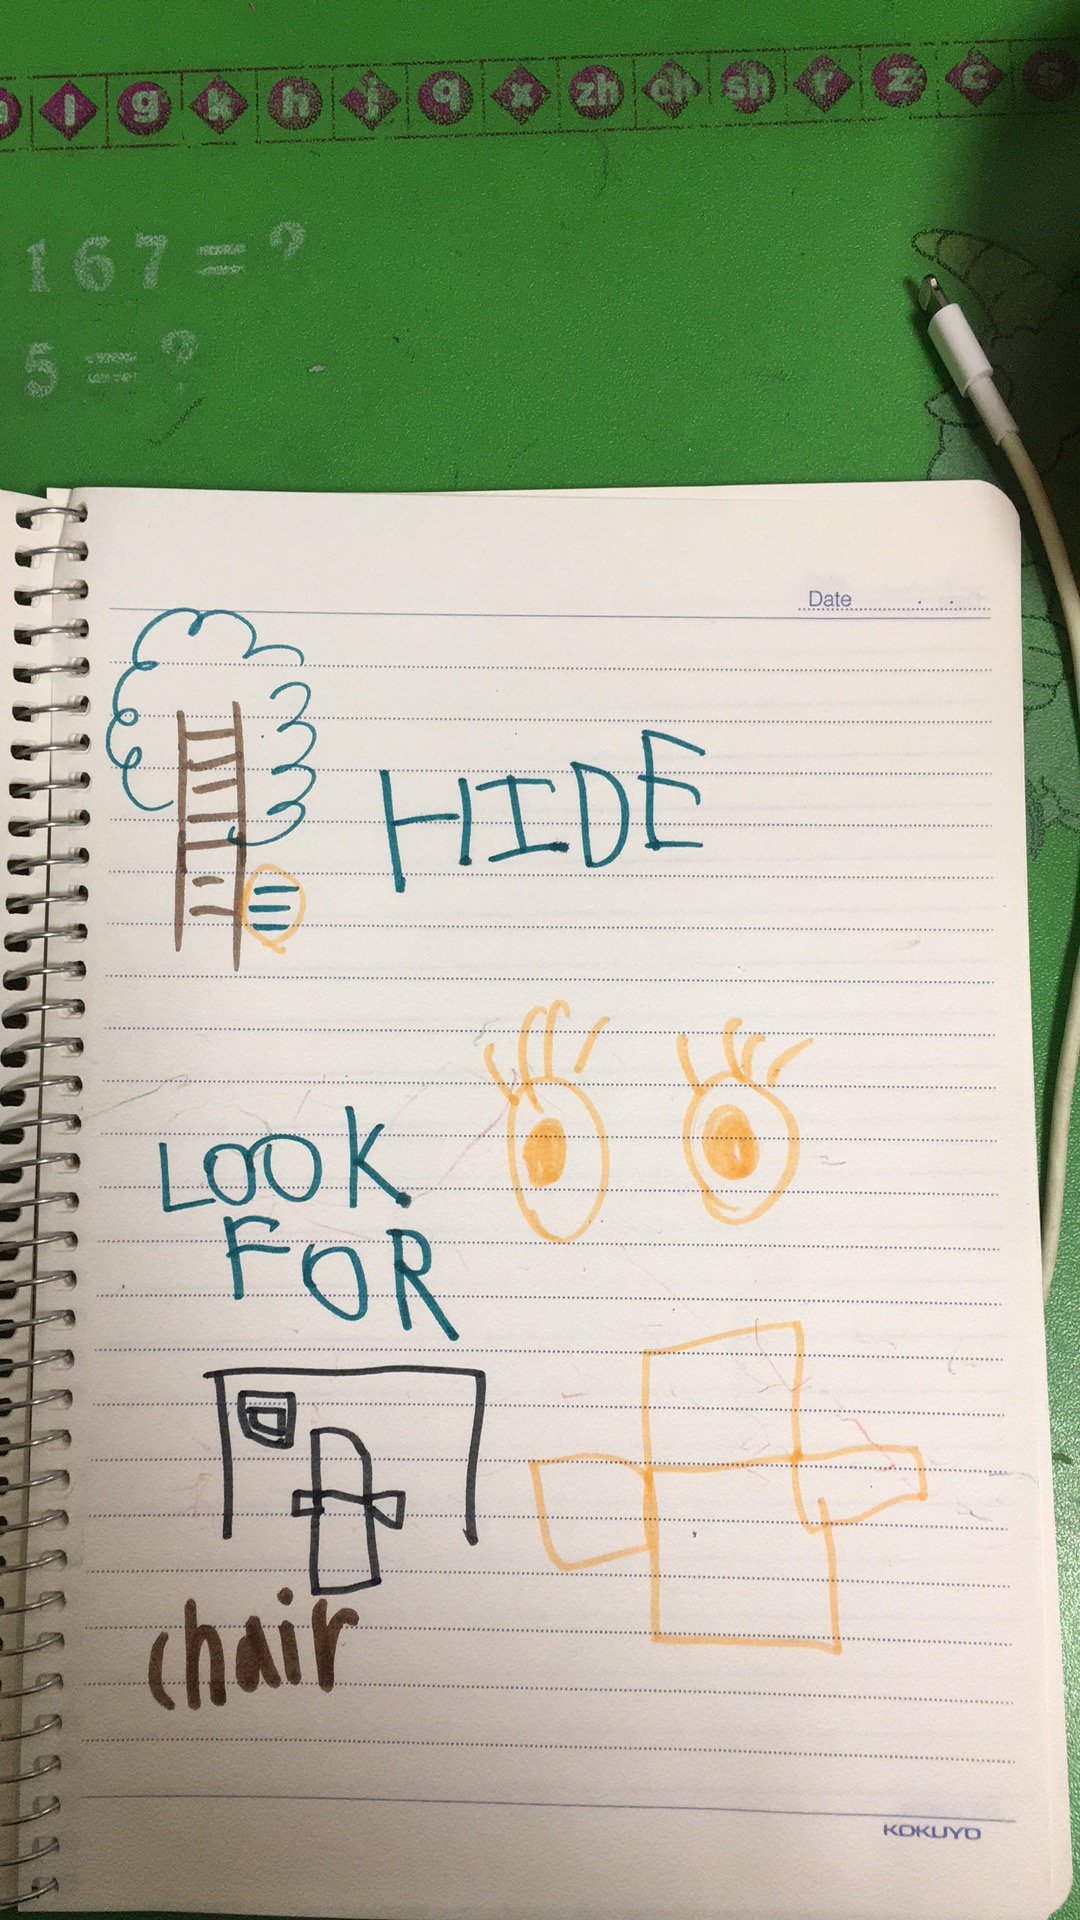 l g k h j q x zh ch sh r z c s
167=?
5=?
Date
HIDE
LOOK
FOR
chair
KOKUYO